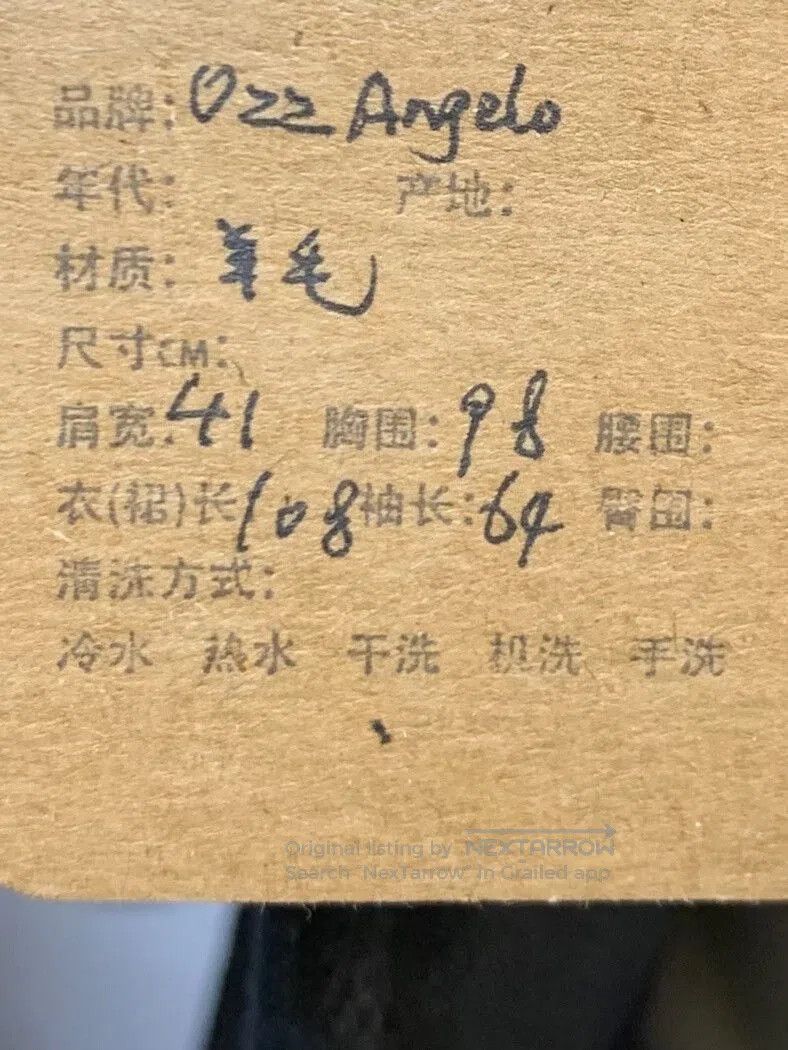 品牌: Ozz Angelo
年代: 产地:
材质: 羊毛
尺寸CM:
肩宽: 41 胸围: 98 腰围:
衣(裙)长 108 袖长: 64 臀围:
清洗方式:
冷水 热水 干洗 机洗 手洗
Original listing by NEXTARROW
Search "NexTarrow" in Grailed app